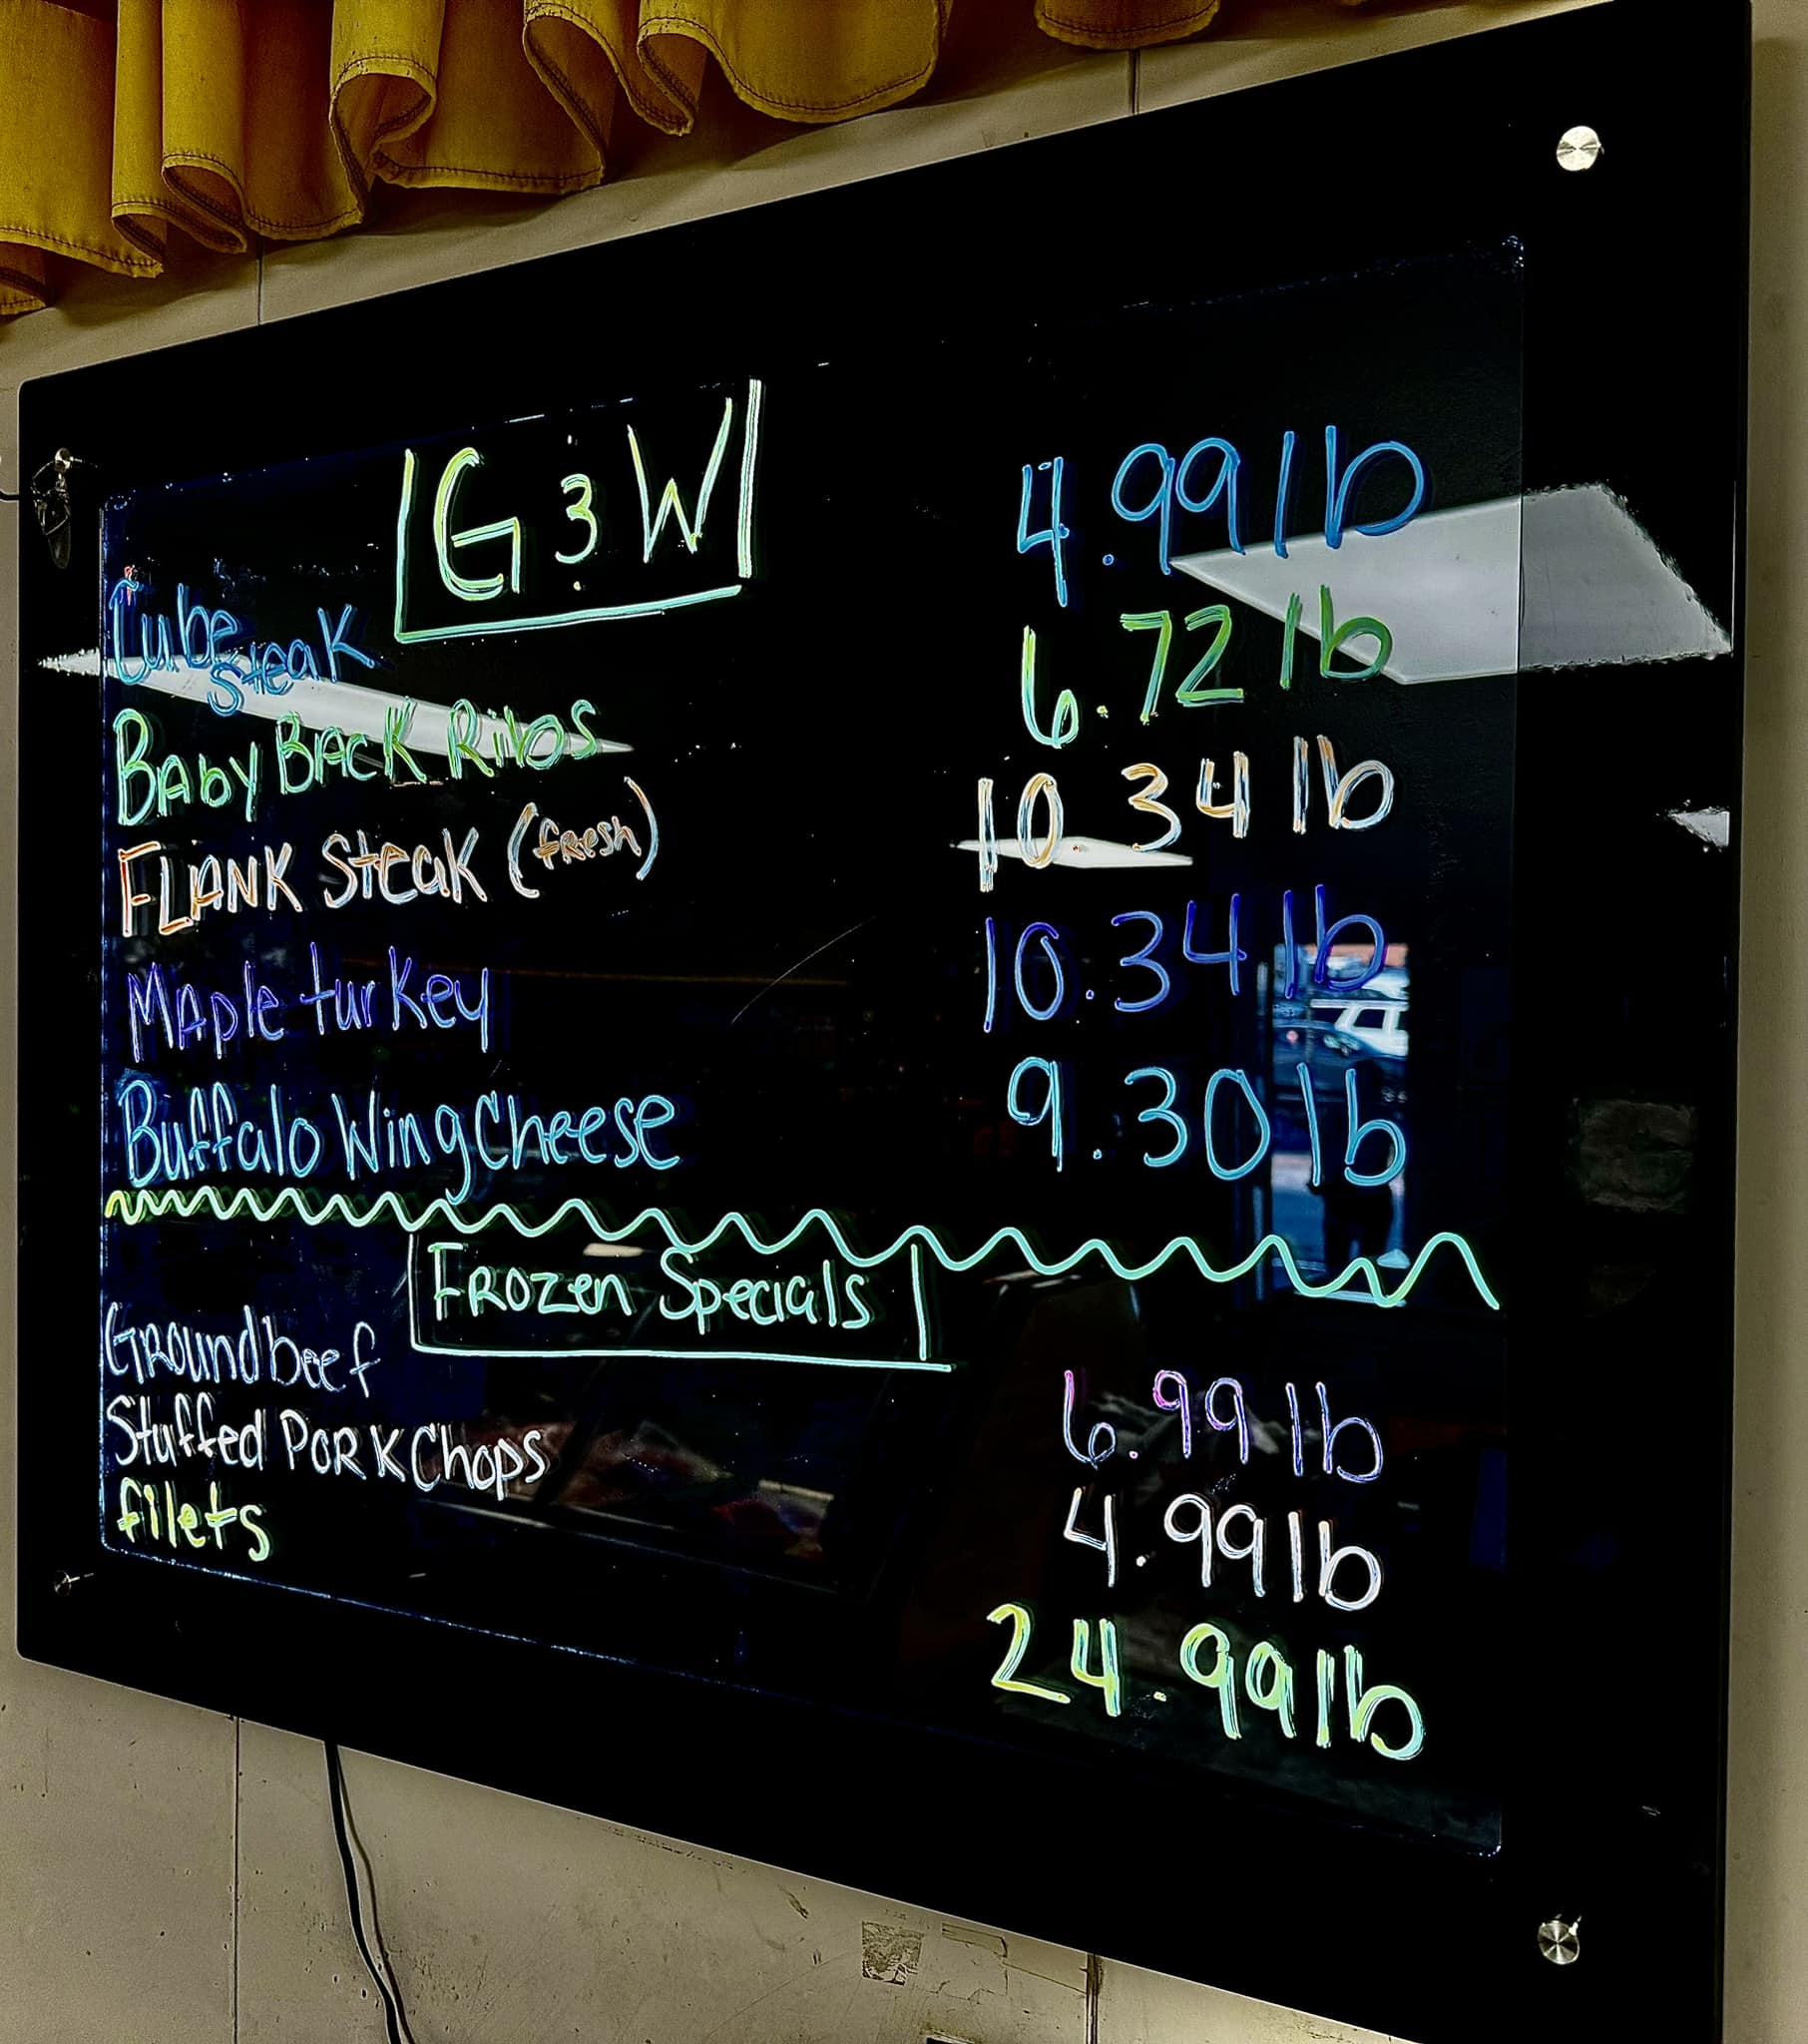 G & W
Cube Steak 4.99 lb
Baby Back Ribs 6.72 lb
FLANK Steak (fresh) 10.34 lb
Maple turkey 10.34 lb
Buffalo Wing Cheese 9.30 lb
Frozen Specials
Ground beef 6.99 lb
Stuffed Pork Chops 4.99 lb
filets 24.99 lb